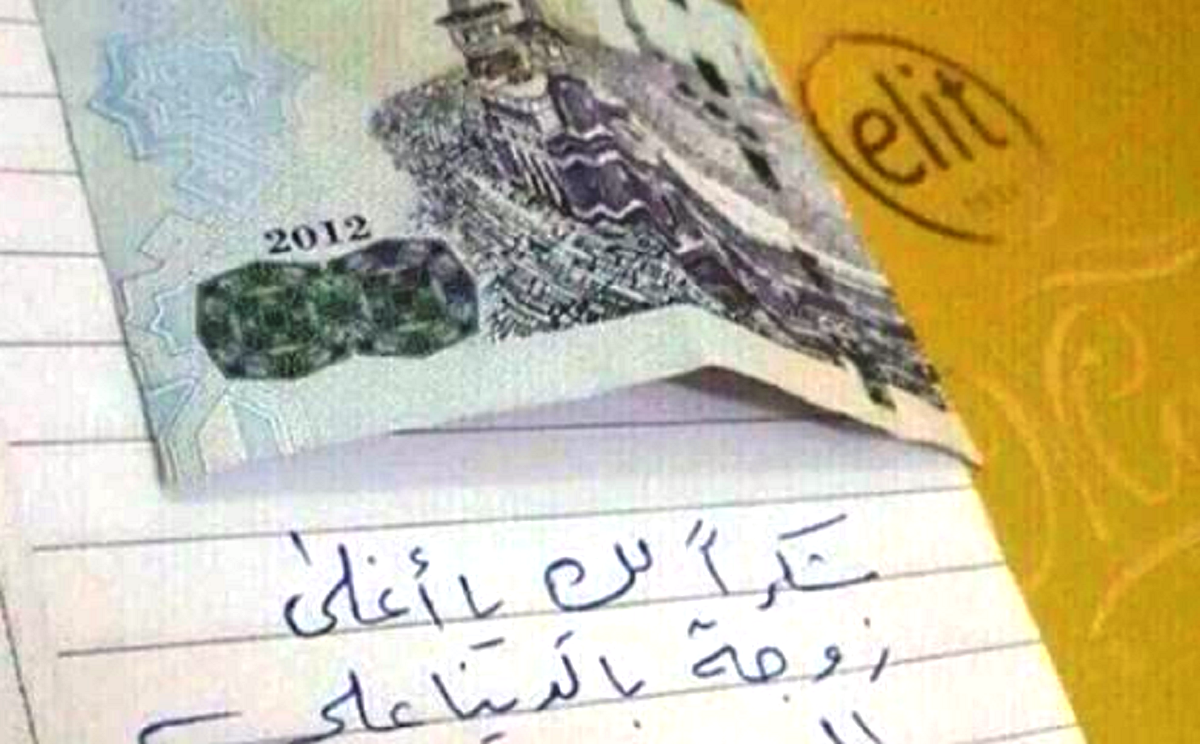 elit
2012
شكراً لك يا أغلى
زوجة بالدنيا على